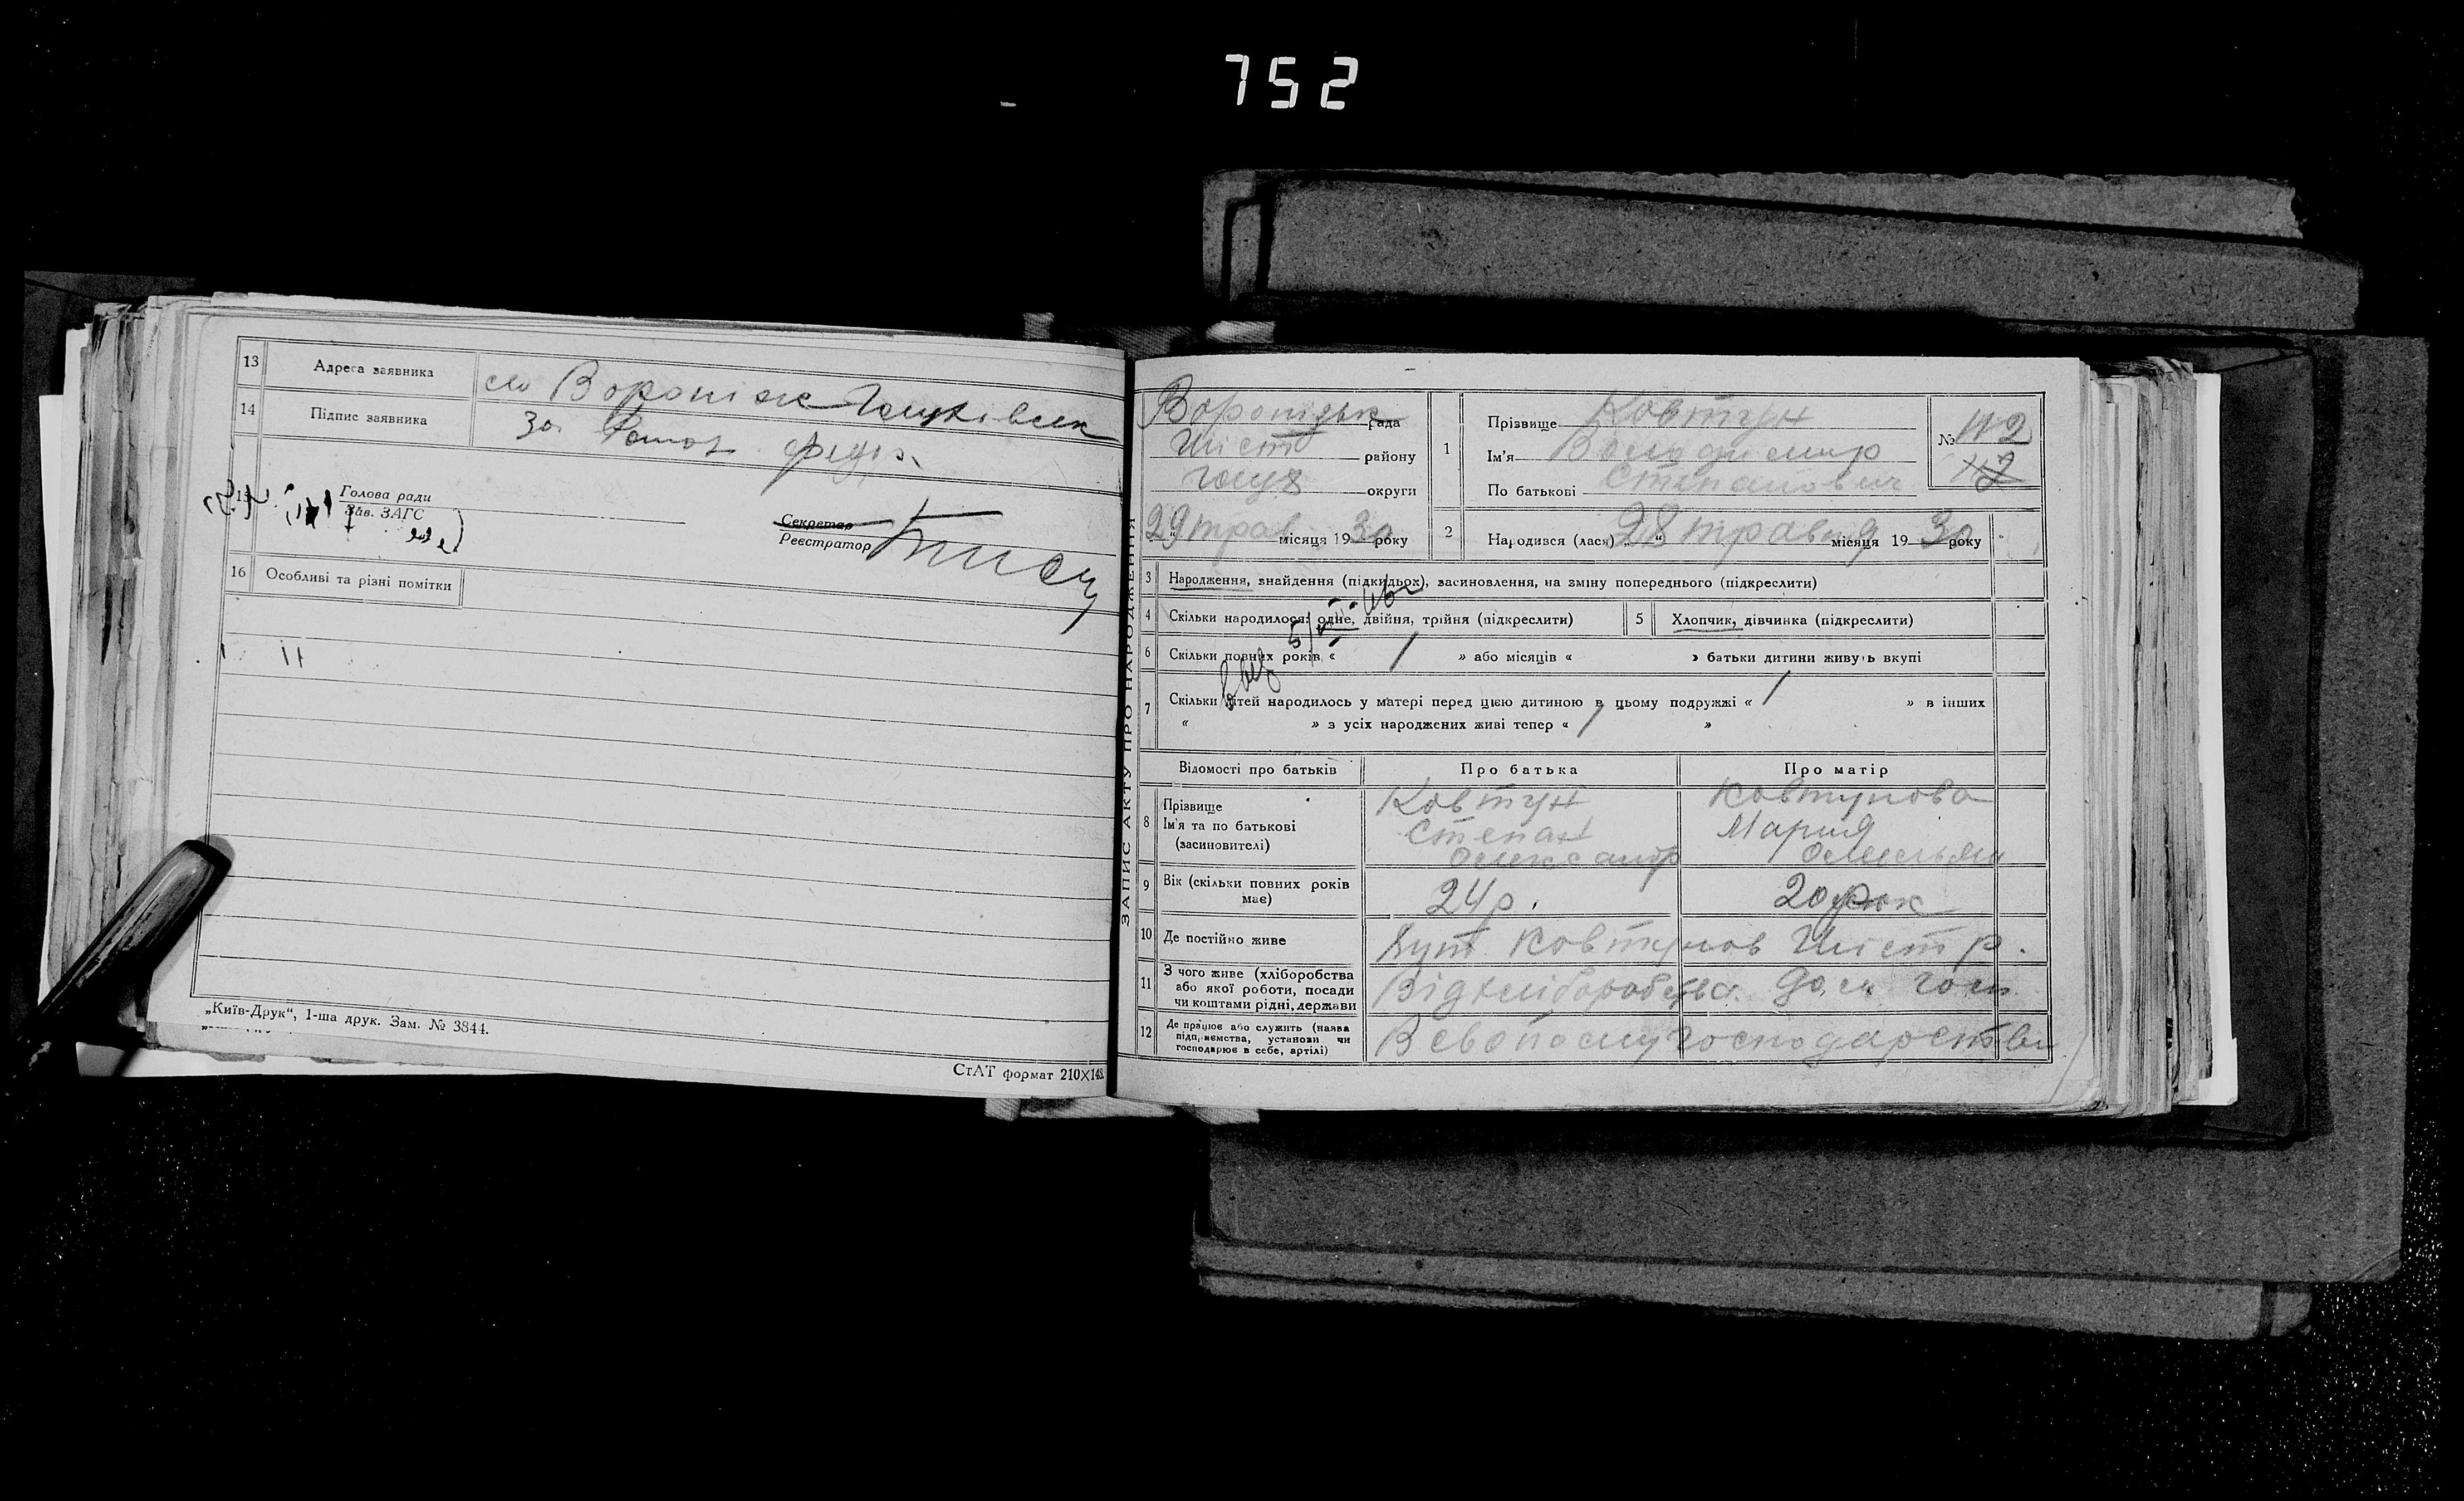 752
13 Адреса заявника
14 Підпис заявника За
15 Голова ради
Зав. ЗАГС
Секретар
Реєстратор
16 Особливі та різні помітки
„Київ-Друк“, 1-ша друк. Зам. № 3844.
СтАТ формат 210×148
ЗАПИС АКТУ ПРО НАРОДЖЕННЯ
рада
Шіст району
округи
29 трав місяця 1930 року
1 Прізвище Ковтун
Ім'я Володимир
По батькові Степанович
№ 112
2 Народився (лася) „28“ травня місяця 1930 року
3 Народження, знайдення (підкидьох), васиновлення, на зміну попереднього (підкреслити)
4 Скільки народилося: одне, двійня, трійня (підкреслити) 5 Хлопчик, дівчинка (підкреслити)
6 Скільки повних років „ 1 » або місяців « » батьки дитини живуть вкупі
7 Скільки дітей народилось у матері перед цією дитиною в цьому подружжі « 1 » в інших
« » з усіх народжених живі тепер « 1 »
Відомості про батьків Про батька Про матір
8 Прізвище Ковтун Ковтунова
Ім'я та по батькові Степан Мария
(засиновителі) Олександр Омельян
9 Вік (скільки повних років має) 24 р. 20
10 Де постійно живе Хут. Ковтунов Шіст р.
11 З чого живе (хліборобства або якої роботи, посади чи коштами рідні, держави Від хліборобства дом госп
12 Де працює або служить (назва підприємства, установи чи господарює в себе, артілі) В свойому господарстві